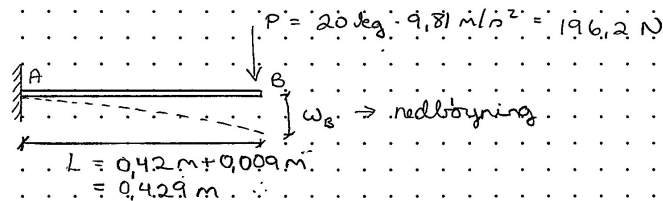 P = 20 kg · 9,81 m/s² = 196,2 N
A
B
ω_B → nedbøyning
L = 0,42 m + 0,009 m
= 0,429 m